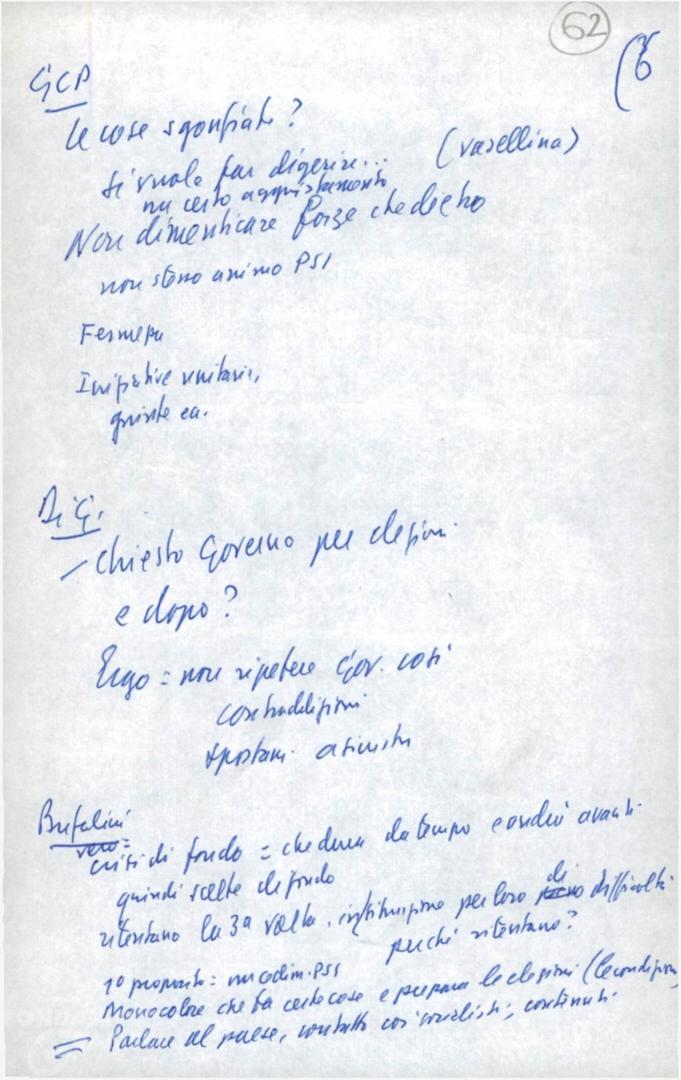 62
(6
GCP
le cose sgonfiate?
si vuole far digerire... (vasellina)
un certo aggiustamento
Non dimenticare forze che dietro
non stono animo PSI
Fermezza
Iniziative unitarie,
giunte ecc.
Di Gi.
– chiesto Governo per elezioni
e dopo?
Ergo = non ripetere Gov. così
contraddizioni
spostam. a sinistra
Bufalini
vero =
crisi di fondo = che dura da tempo e andrà avanti
quindi scelte di fondo
ritentano la 3a volta. per loro di difficoltà
perché ritentano?
1o proposito: PSI
Monocolore che fa certe cose e prepara le elezioni (le condizioni
= Parlare al paese, contatto coi socialisti, continuati